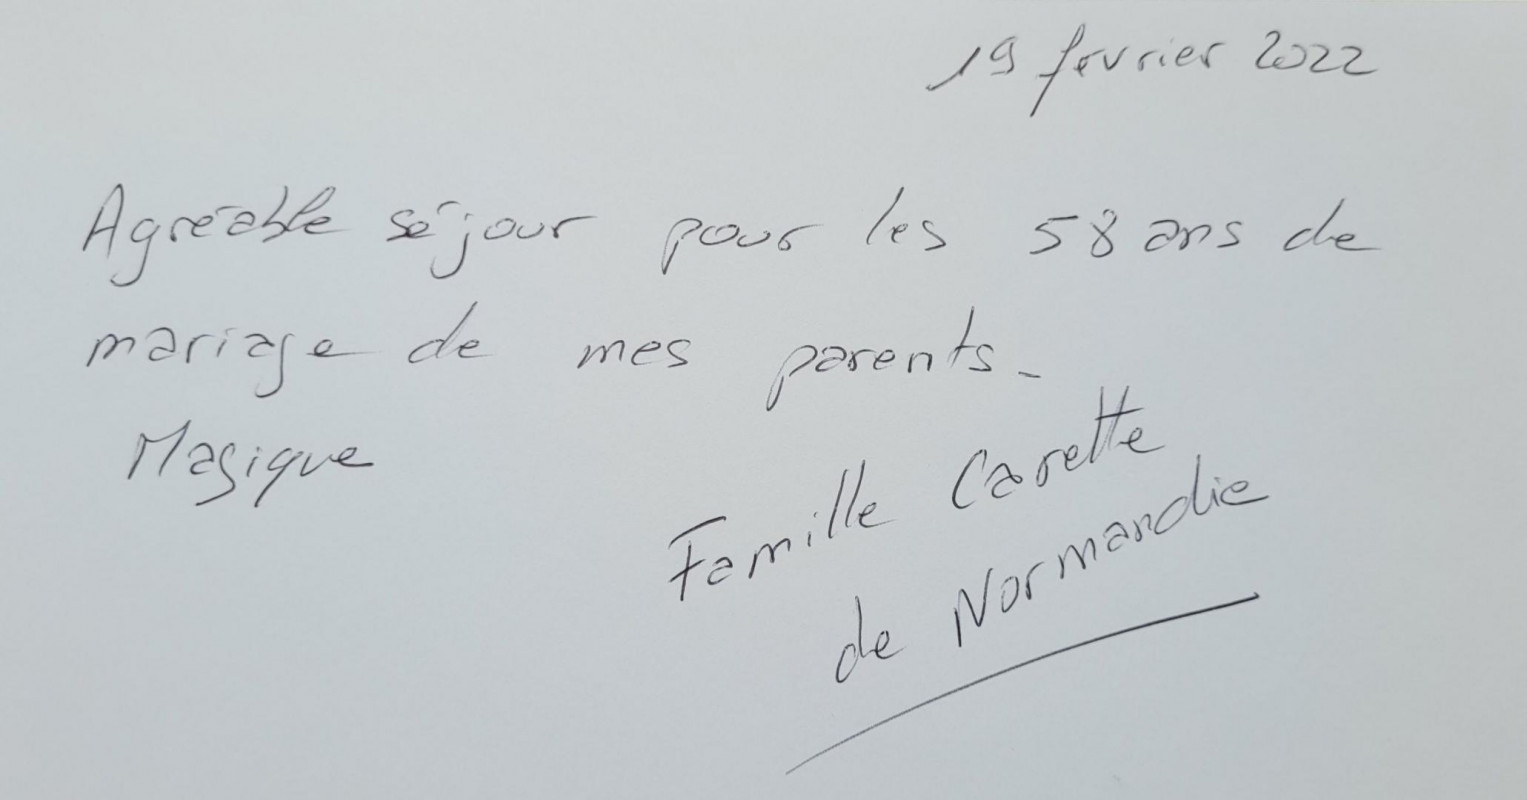 19 fevrier 2022
Agréable séjour pour les 58 ans de
mariage de mes parents.
Magique
Famille Carette
de Normandie